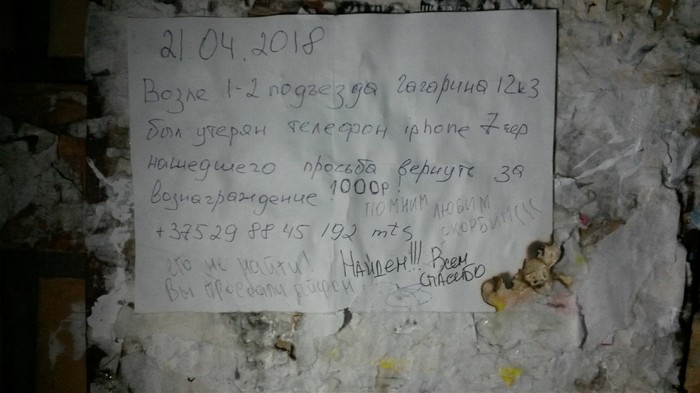 21 04.2018
Возле 1-2 подъезда Гагарина 12к3
был утерян телефон iphone 7 чер
нашедшего просьба вернуть за
вознаграждение! 1000р!
ПОМНИМ ЛЮБИМ
СКОРБИМ(((
+375 29 88 45 192 mts
не найти!
Вы айфон
НАЙДЕН!!! Всем
СПАСИБО